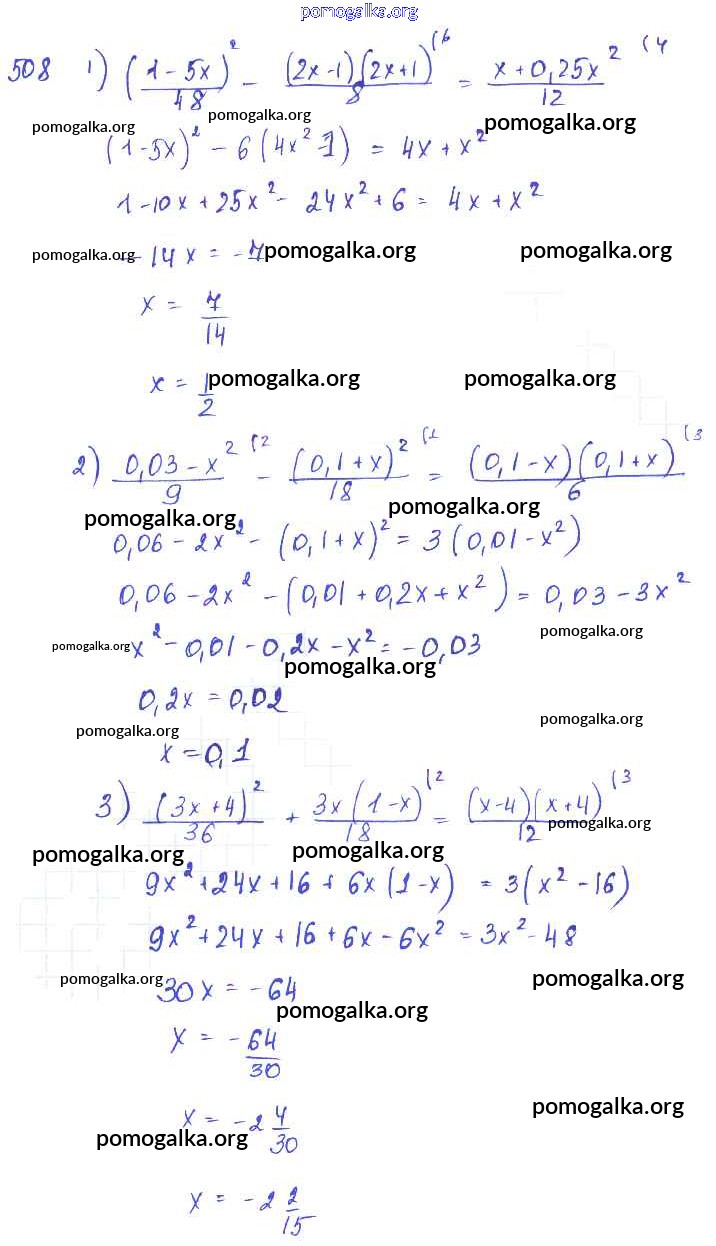 pomogalka.org
508 1) (1-5x)²/48 - (2x-1)(2x+1)/8 (6 = x+0,25x²/12 (4
pomogalka.org pomogalka.org pomogalka.org
(1-5x)² - 6(4x²-1) = 4x+x²
1-10x+25x²-24x²+6 = 4x+x²
pomogalka.org -14x = -7 pomogalka.org pomogalka.org
x = 7/14
x = 1/2 pomogalka.org pomogalka.org
2) 0,03-x²/9 (2 - (0,1+x)²/18 (1 = (0,1-x)(0,1+x)/6 (3
pomogalka.org pomogalka.org
0,06-2x² - (0,1+x)² = 3(0,01-x²)
0,06-2x² - (0,01+0,2x+x²) = 0,03-3x²
pomogalka.org
pomogalka.org x²-0,01-0,2x-x² = -0,03
pomogalka.org
0,2x = 0,02
pomogalka.org pomogalka.org
x = 0,1
3) (3x+4)²/36 + 3x(1-x)/18 (2 = (x-4)(x+4)/12 (3
pomogalka.org
pomogalka.org pomogalka.org
9x²+24x+16+6x(1-x) = 3(x²-16)
9x²+24x+16+6x-6x² = 3x²-48
pomogalka.org pomogalka.org
30x = -64
pomogalka.org
x = -64/30
x = -2 4/30 pomogalka.org
pomogalka.org
x = -2 2/15